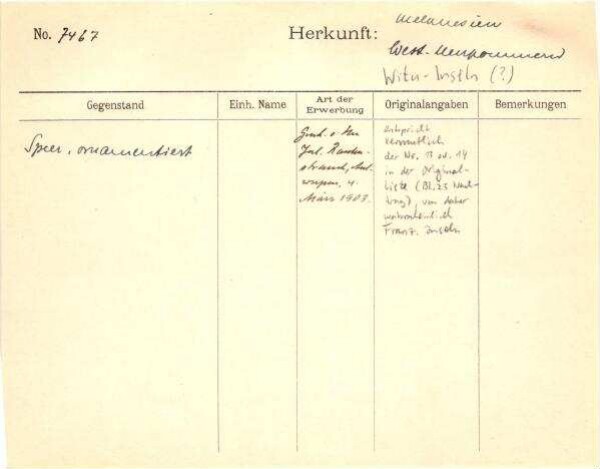 No. 7467
Herkunft:
Melanesien
West-Neupommern
Witu-Inseln (?)
Gegenstand
Einh. Name
Art der
Erwerbung
Originalangaben
Bemerkungen
Speer, ornamentiert
Gesch. v. Hrn
Jul.
März 1908.
entspricht
vermutlich
der No. 13 od. 14
in der Original-
liste (Bl. 25 Nach-
trag), von daher
wahrscheinlich
Franz. Inseln